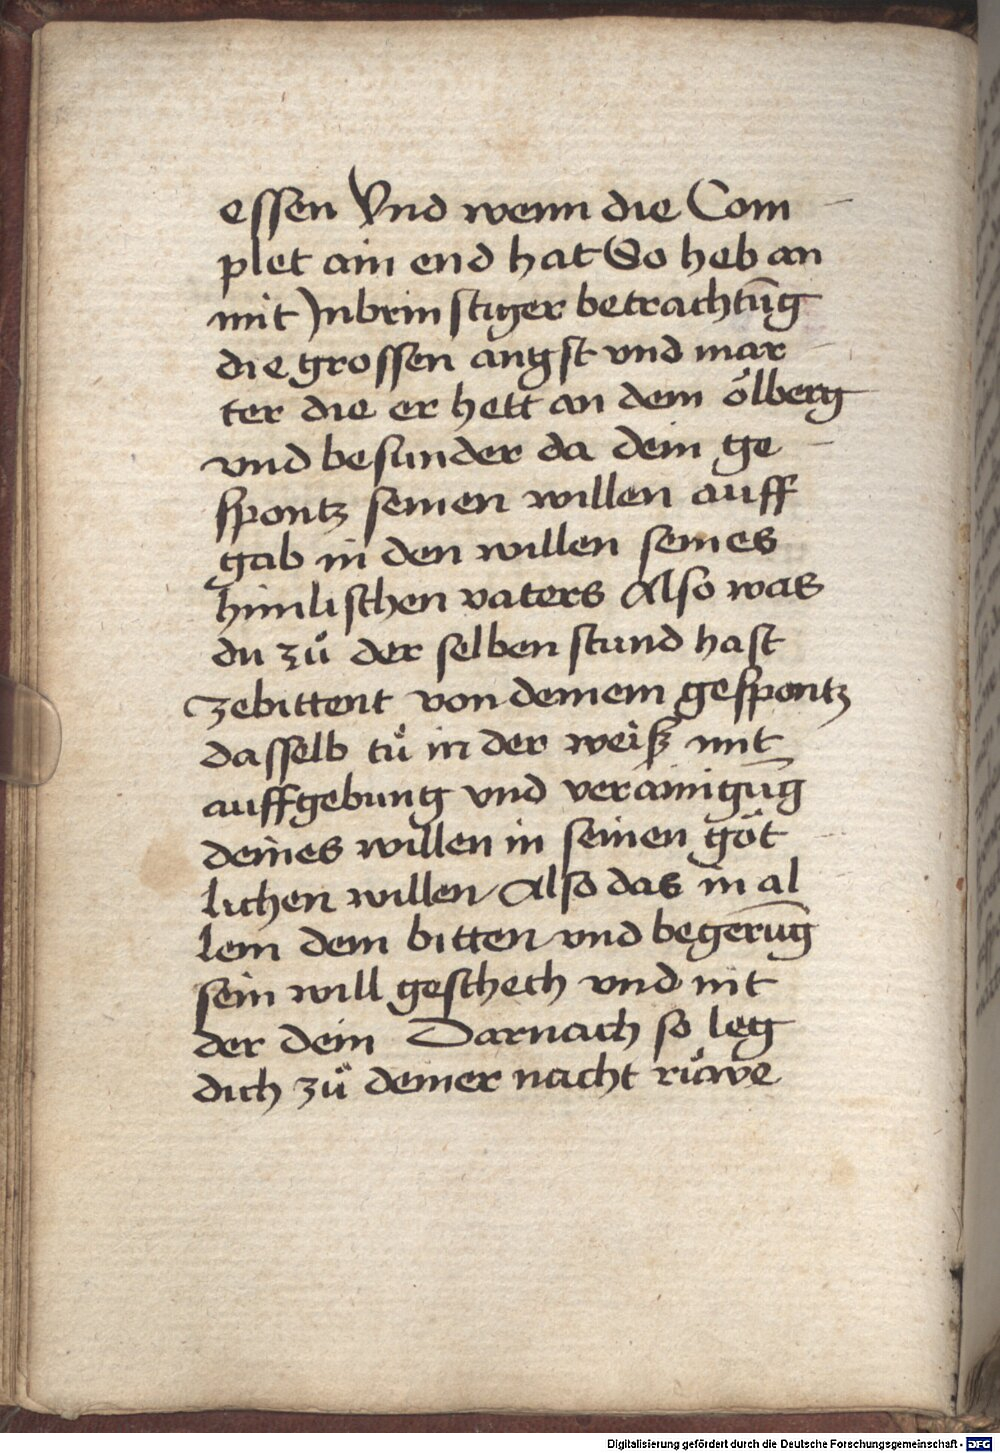 essen Vnd wenn die Com-
plet ain end hat So heb an
mit Jnbrinstiger betrachtūg
die grossen angst vnd mar-
ter die er hett an dem ölberg
vnd besunder da dein ge-
spontz seinen willen auff
gab in den willen seines
himlischen vaters Also was
du zů der selben stund hast
zebittent von deinem gespontz
dasselb tů in der weiß mit
auffgebung vnd verainigūg
deines willen in seinen göt-
lichen willen Also das in al
lem dem bitten vnd begerūg
sein will geschech vnd nit
der dein Darnach so leg
dich zů deiner nacht růwe
Digitalisierung gefördert durch die Deutsche Forschungsgemeinschaft - DFG